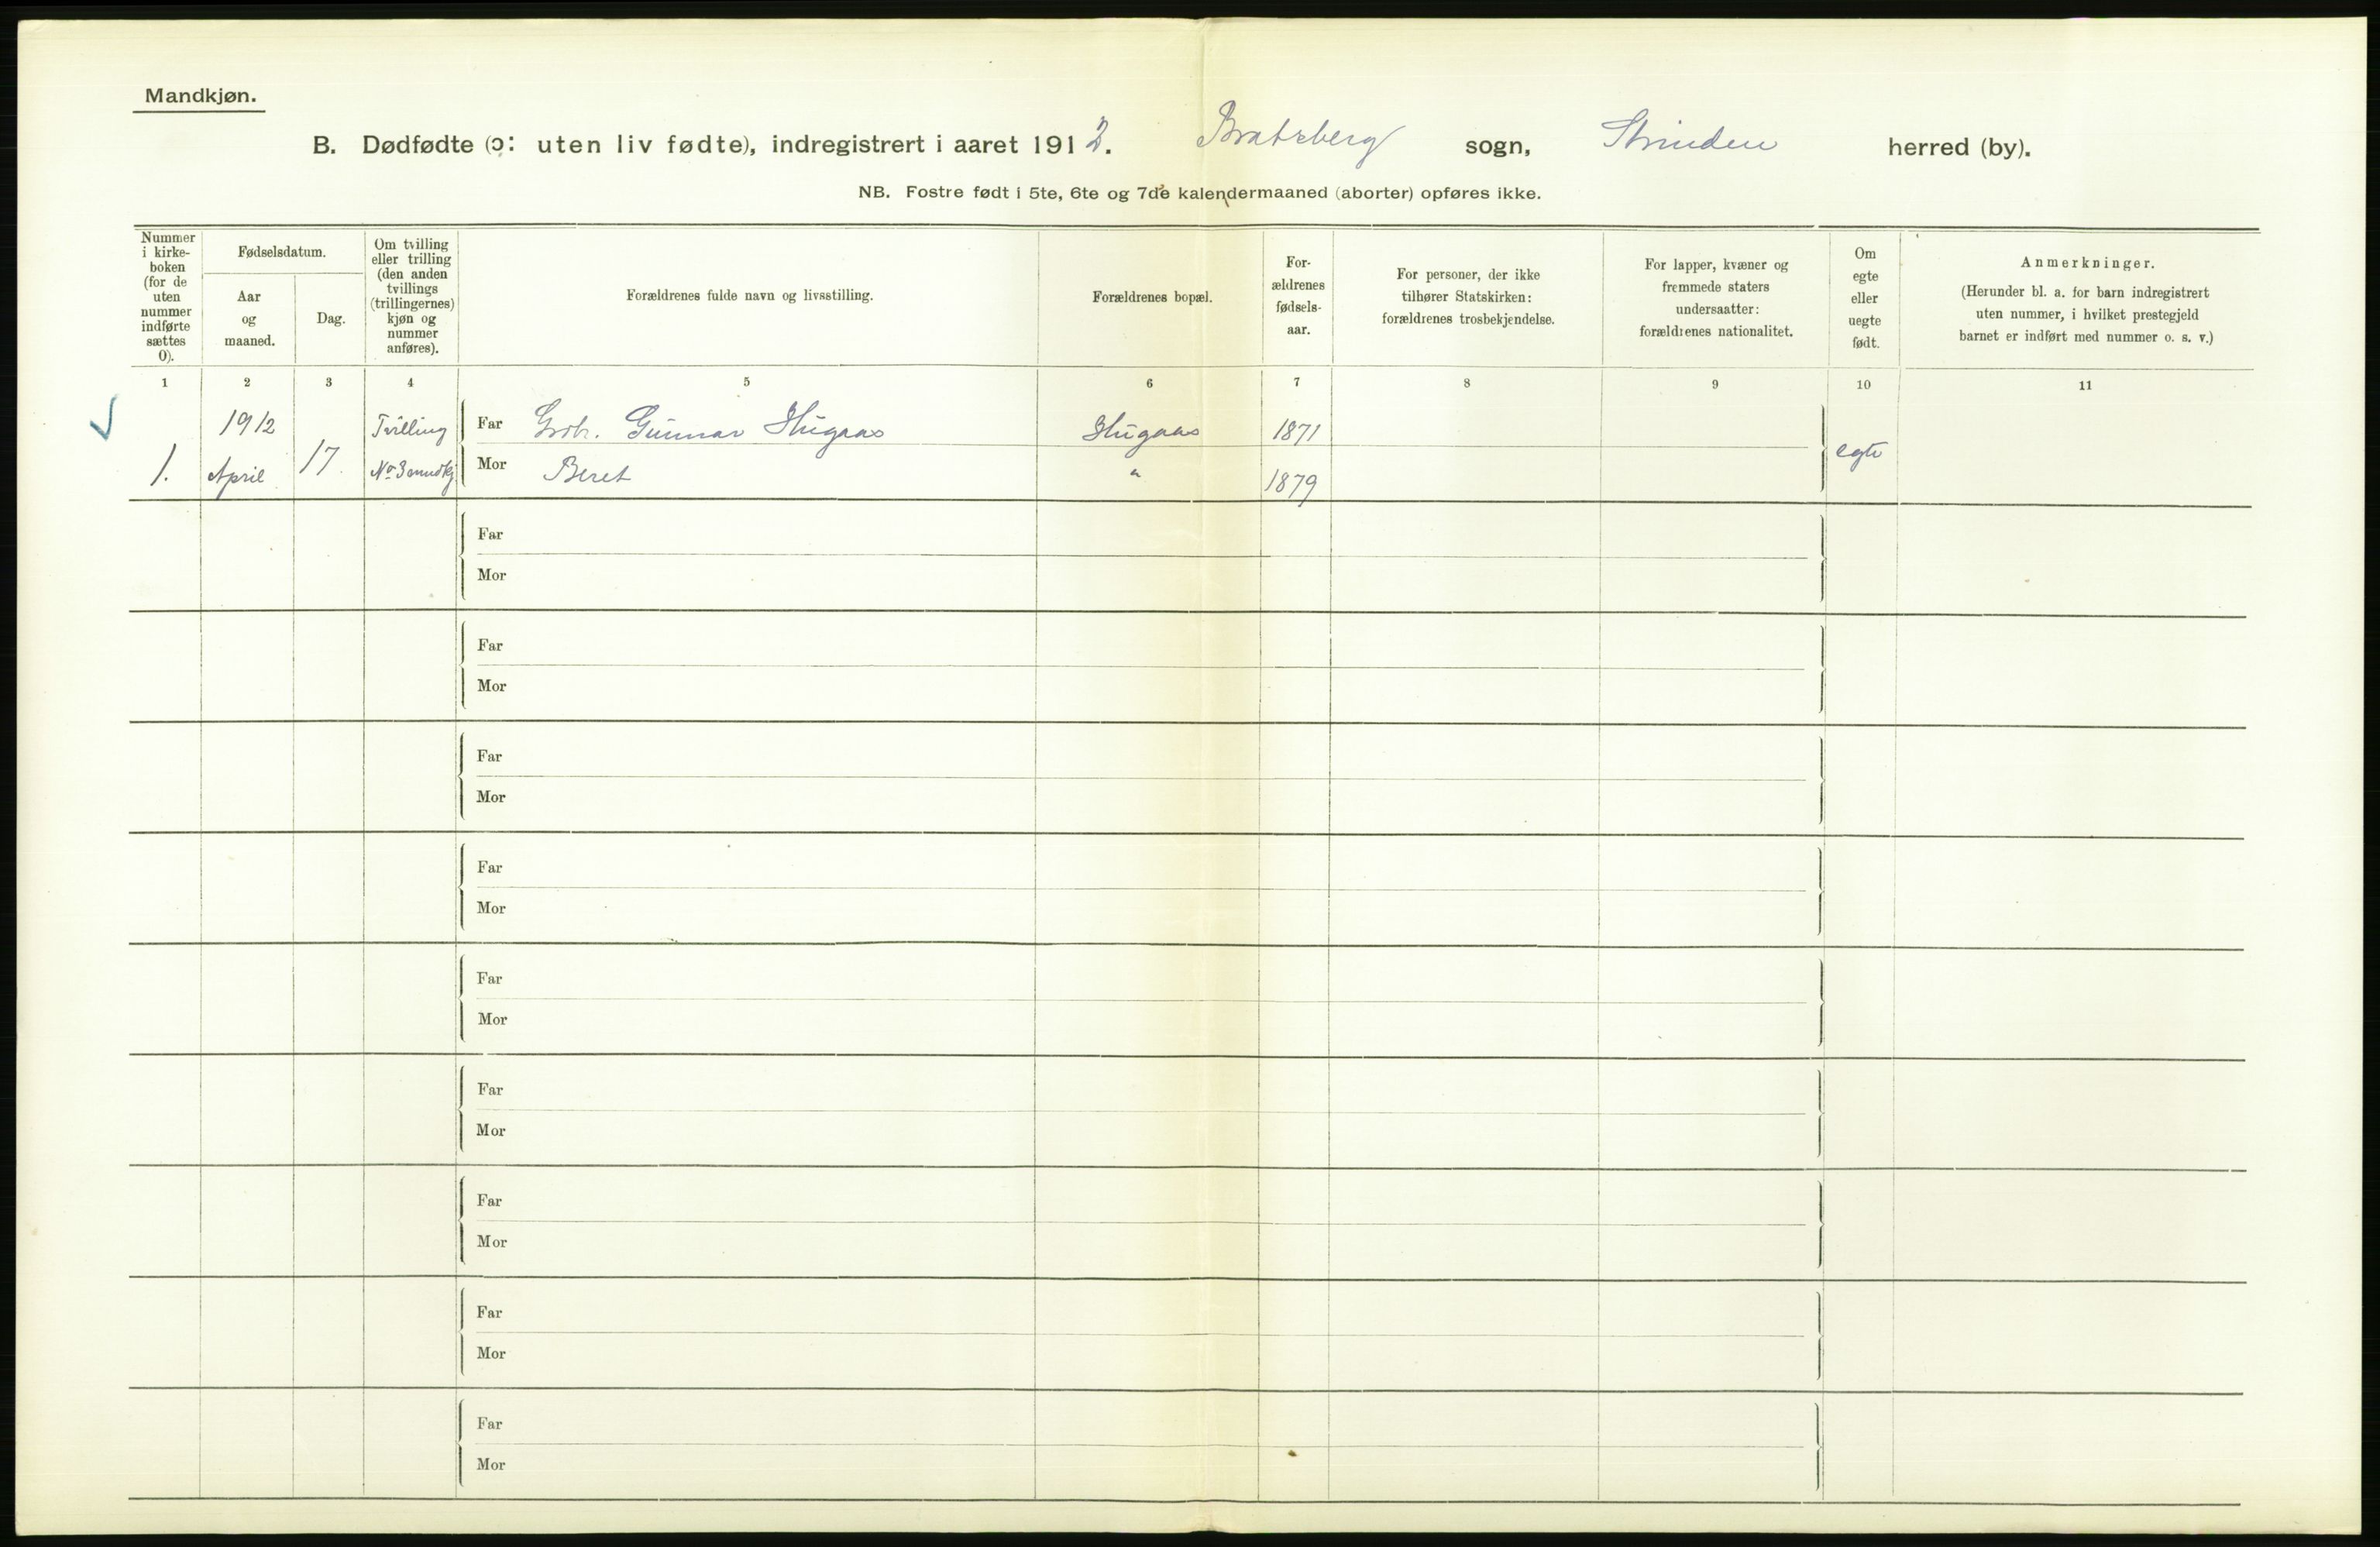 Mandkjøn.
B. Dødfødte (ɔ: uten liv fødte), indregistrert i aaret 1912. Bratsberg sogn, Strinden herred (by).
NB. Fostre født i 5te, 6te og 7de kalendermaaned (aborter) opføres ikke.
Nummer
i kirke-
boken
(for de
uten
nummer
indførte
sættes
0).
Fødselsdatum.
Aar
og
maaned.
Dag.
Om tvilling
eller trilling
(den anden
tvillings
(trillingernes)
kjøn og
nummer
anføres).
Forældrenes fulde navn og livsstilling.
Forældrenes bopæl.
For-
ældrenes
fødsels-
aar.
For personer, der ikke
tilhører Statskirken:
forældrenes trosbekjendelse.
For lapper, kvæner og
fremmede staters
undersaatter:
forældrenes nationalitet.
Om
egte
eller
uegte
født.
Anmerkninger.
(Herunder bl. a. for barn indregistrert
uten nummer, i hvilket prestegjeld
barnet er indført med nummer o. s. v.)
1 2 3 4 5 6 7 8 9 10 11
1912 Tvilling Far Grbr. Gunnar Stugaas Stugaas 1871
1. April 17. No 3 Mor Beret " 1879 egte
Far
Mor
Far
Mor
Far
Mor
Far
Mor
Far
Mor
Far
Mor
Far
Mor
Far
Mor
Far
Mor